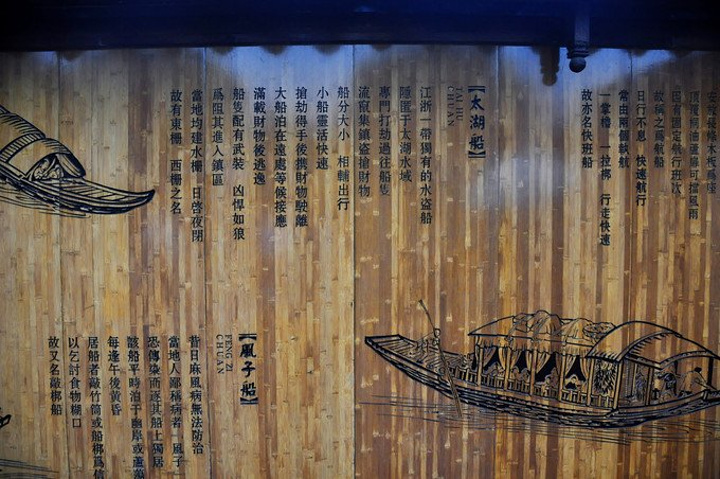 頂
固定航行班次
故稱之爲航船
日行不息　快速航行
常由兩個執航
一掌櫓　一拉梆　行走快速
故亦名快班船
【太湖船】
TAI HU
CHUAN
江浙一帶獨有的水盜船
隱匿于太湖水域
專門打劫過往船隻
流竄集鎮盜搶財物
船分大小　相輔出行
小船靈活快速
搶劫得手後攜財物駛離
大船泊在遠處等候接應
滿載財物後逃逸
船隻配有武裝　凶悍如狼
爲阻其進入鎮區
當地均建水柵　日啓夜閉
故有東柵　西柵之名
【風子船】
FENG ZI
CHUAN
昔日麻風病無法防治
當地人鄙稱病者　風子
恐傳染而逐其船上獨居
該船平時泊于幽岸或蘆蕩
每逢午後黃昏
居船者敲竹筒或船梆爲信
以乞討食物糊口
故又名敲梆船